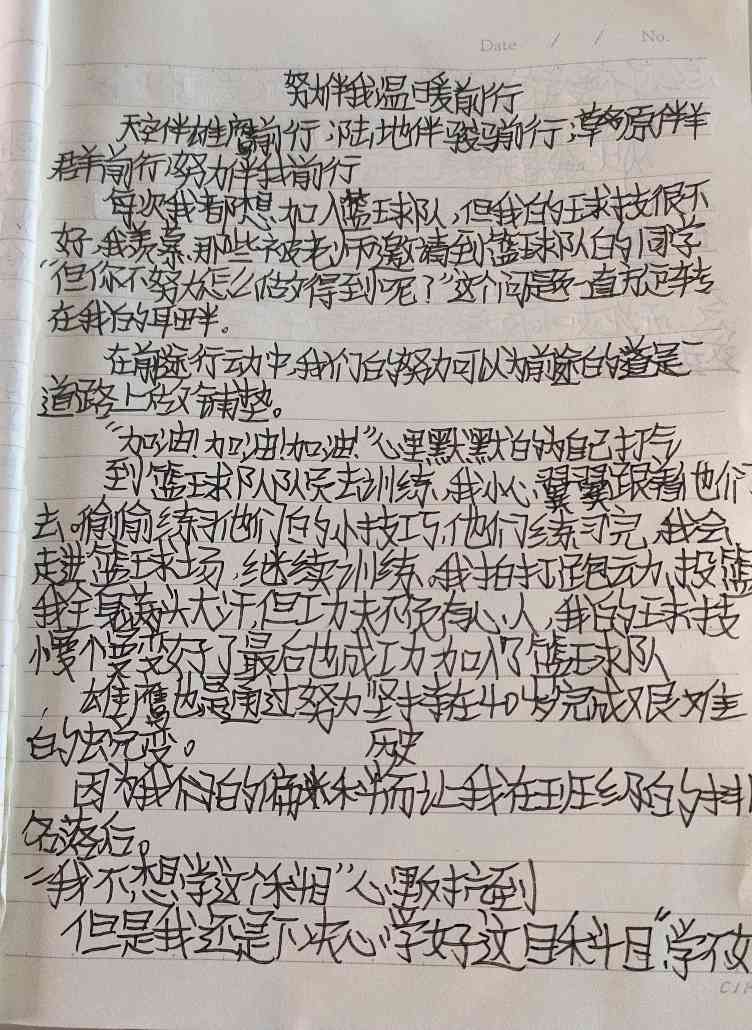 Date / / No.
努力伴我温暖前行
天空伴雄鹰前行;陆地伴骏马前行;草原伴羊
群前行;努力伴我前行
每次我都想加入篮球队,但我的球技很不
好,我羡慕那些被老师邀请到篮球队的同学
"但你不努力怎么做得到呢?"这个问题一直旋转
在我的耳畔。
在前行动中,我们的努力可以为前途的
道路上做铺垫。
"加油!加油!加油!"心里默默的为自己打气
到篮球队队员去训练,我小心翼翼跟着他们
去。偷偷练习他们的小技巧,他们练习完,我会
走进篮球场,继续训练。我拍打运动,投篮
我全身满头大汗,但工力夫不负有心人,我的球技
慢慢变好了最后也成功加入了篮球队
雄鹰也是通过努力坚持在40岁完成艰难
的蜕变。 历史
因为我们的偏科而让我在班级的排
名落后。
"我不想学这个科目"心里抗到
但是我还是下决心学好这目科目"学不